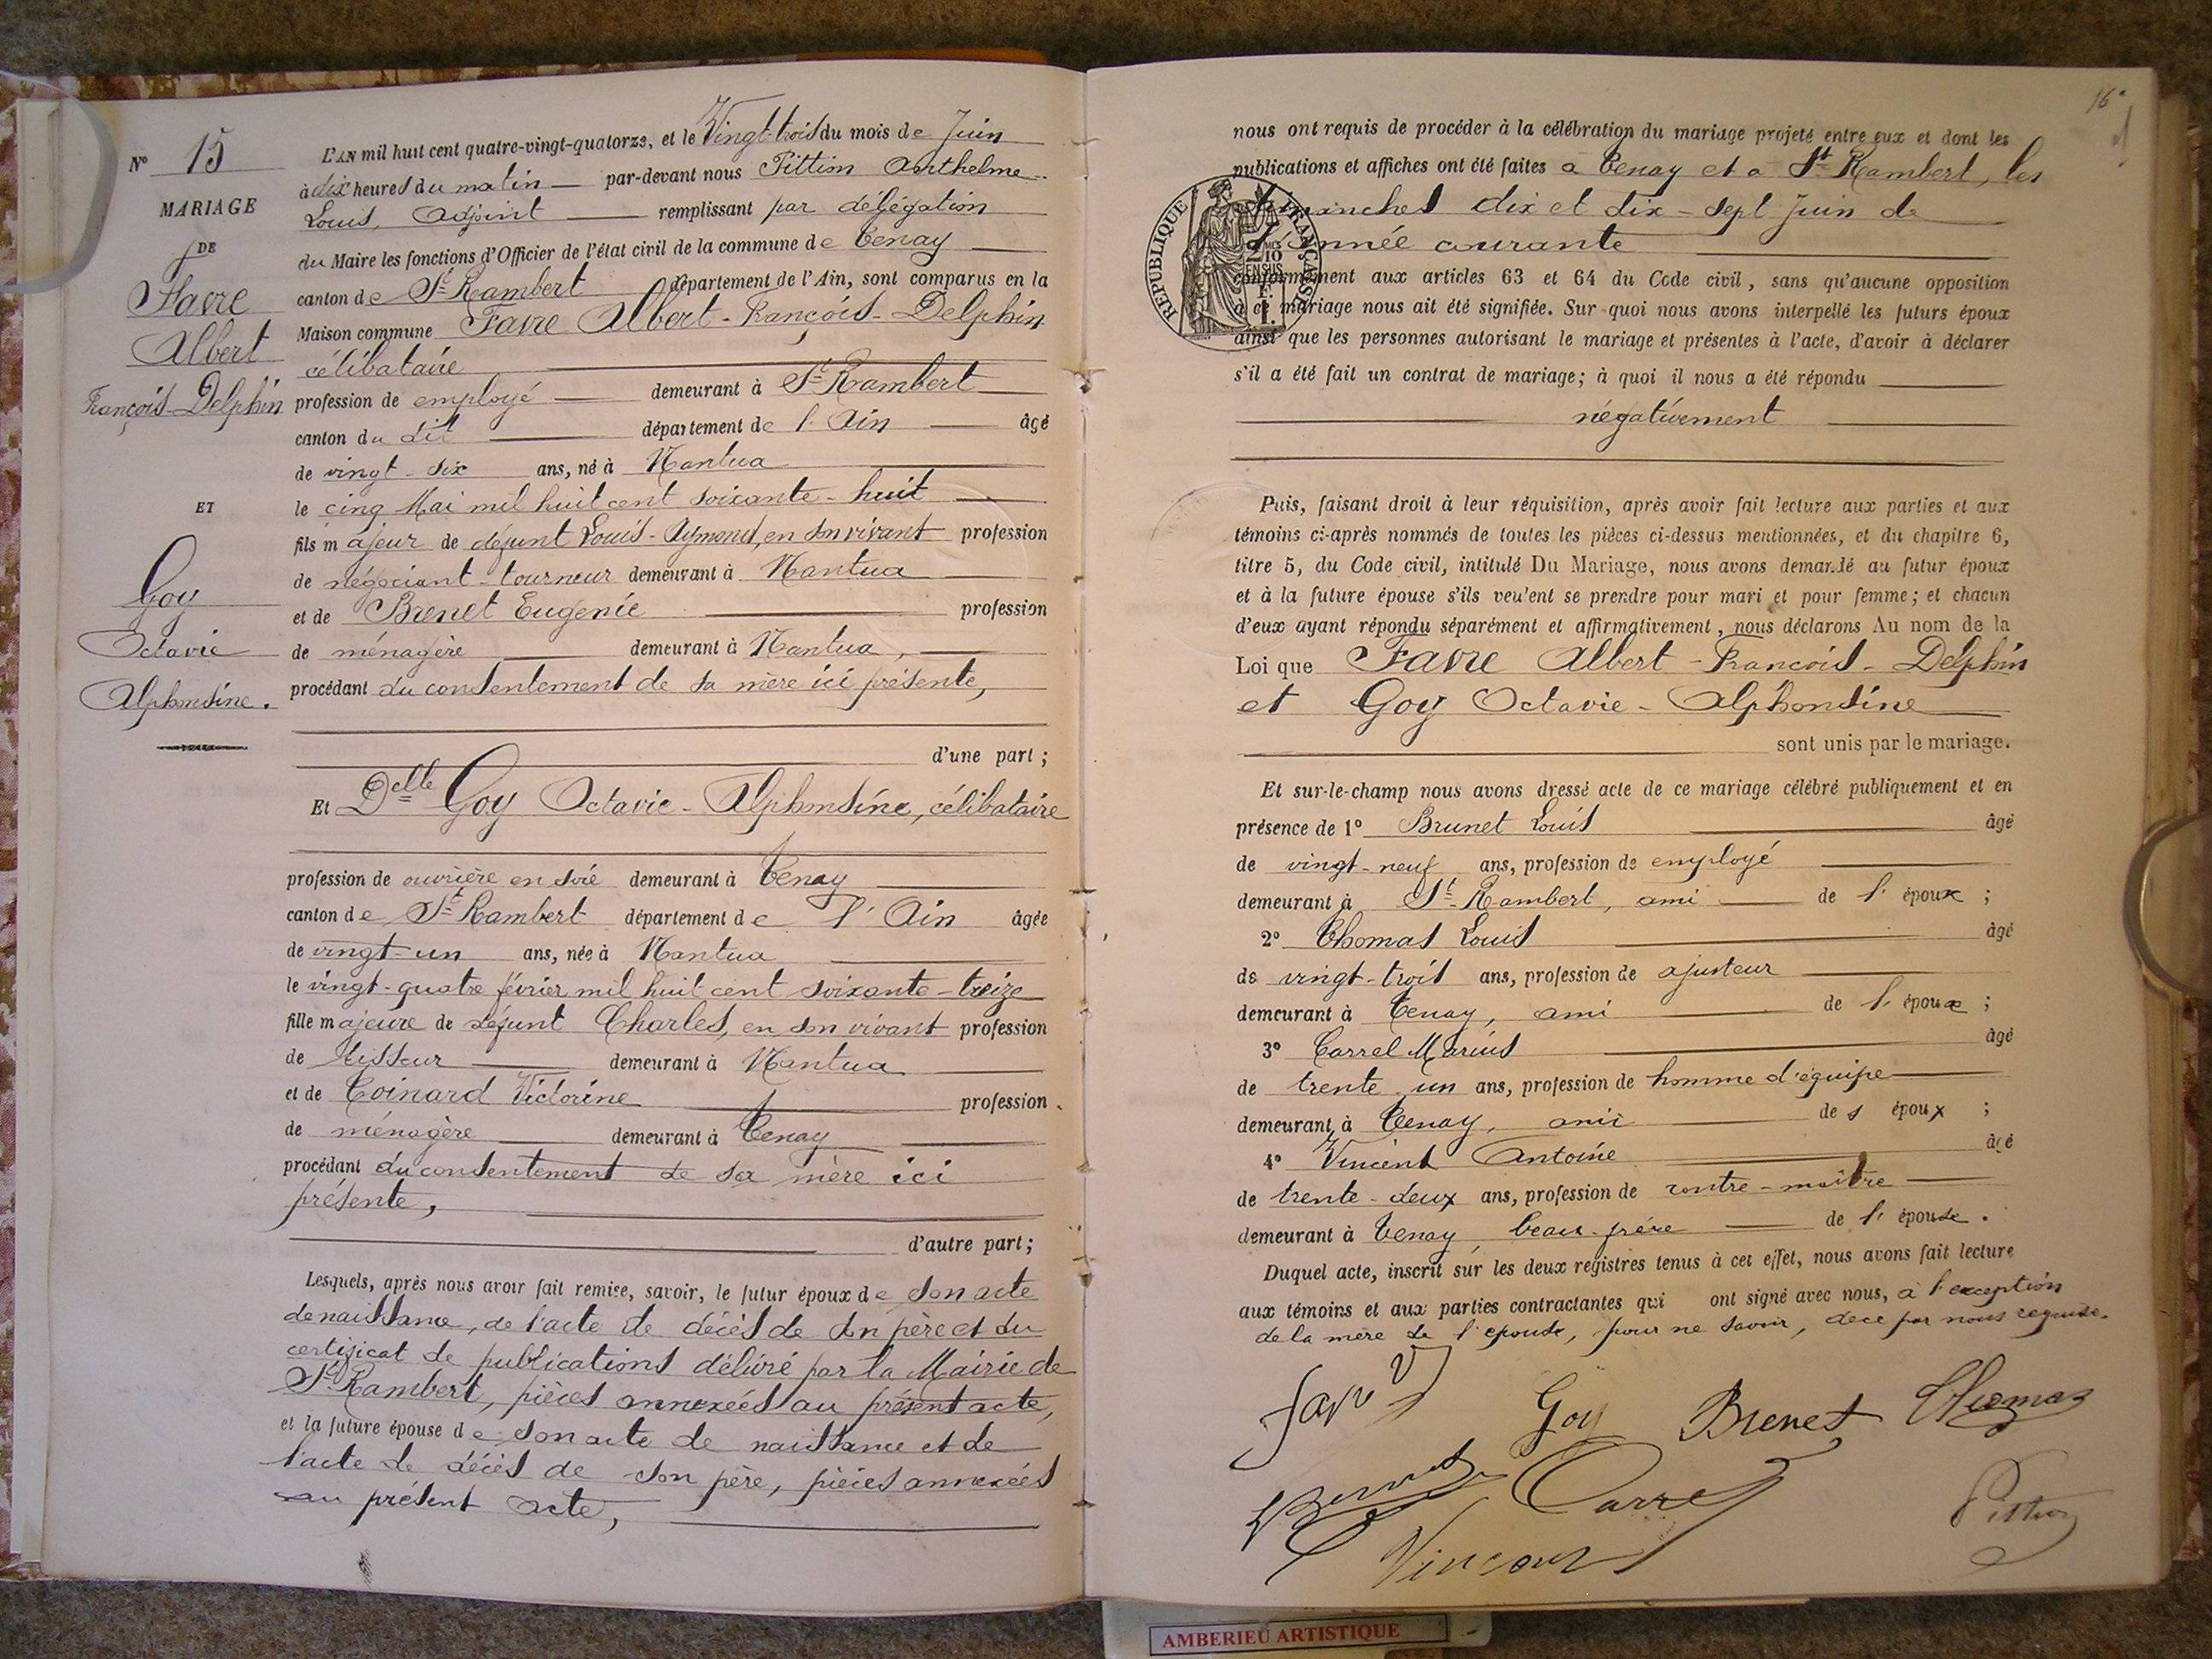 N° 15
MARIAGE
DE
Favre
Albert
François-Delphin
ET
Goy
Octavie
Alphonsine.
L'AN mil huit cent quatre-vingt-quatorze, et le Vingt-trois du mois de Juin
à dix heures du matin par-devant nous Pittion Anthelme
Louis, Adjoint remplissant par délégation
du Maire les fonctions d'Officier de l'état civil de la commune de Tenay
canton de St Rambert département de l'Ain, sont comparus en la
Maison commune Favre Albert-François-Delphin
célibataire
profession de employé demeurant à St Rambert
canton du dit département de l'Ain âgé
de vingt-six ans, né à Nantua
le cinq Mai mil huit cent soixante-huit
fils majeur de défunt Louis-Aymond, en son vivant profession
de négociant-tourneur demeurant à Nantua
et de Brenet Eugénie profession
de ménagère demeurant à Nantua,
procédant du consentement de sa mère ici présente,
d'une part;
Et Delle Goy Octavie-Alphonsine, célibataire
profession de ouvrière en soie demeurant à Tenay
canton de St Rambert département de l'Ain âgée
de vingt-un ans, née à Nantua
le vingt-quatre février mil huit cent soixante-treize
fille majeure de défunt Charles, en son vivant profession
de tisseur demeurant à Nantua
et de Coinard Victorine profession
de ménagère demeurant à Tenay
procédant du consentement de sa mère ici
présente,
d'autre part;
Lesquels, après nous avoir fait remise, savoir, le futur époux de son acte
de naissance, de l'acte de décès de son père et du
certificat de publications délivré par la Mairie de
St Rambert, pièces annexées au présent acte,
et la future épouse de son acte de naissance et de
l'acte de décès de son père, pièces annexées
au présent acte,
16
nous ont requis de procéder à la célébration du mariage projeté entre eux et dont les
publications et affiches ont été faites à Tenay et à St Rambert, les
dimanches dix et dix-sept Juin de
l'année courante
RÉPUBLIQUE FRANÇAISE
conformément aux articles 63 et 64 du Code civil, sans qu'aucune opposition
à ce mariage nous ait été signifiée. Sur quoi nous avons interpellé les futurs époux
ainsi que les personnes autorisant le mariage et présentes à l'acte, d'avoir à déclarer
s'il a été fait un contrat de mariage; à quoi il nous a été répondu
négativement
Puis, faisant droit à leur réquisition, après avoir fait lecture aux parties et aux
témoins ci-après nommés de toutes les pièces ci-dessus mentionnées, et du chapitre 6,
titre 5, du Code civil, intitulé Du Mariage, nous avons demandé au futur époux
et à la future épouse s'ils veulent se prendre pour mari et pour femme; et chacun
d'eux ayant répondu séparément et affirmativement, nous déclarons Au nom de la
Loi que Favre Albert-François-Delphin
et Goy Octavie-Alphonsine
sont unis par le mariage.
Et sur-le-champ nous avons dressé acte de ce mariage célébré publiquement et en
présence de 1° Brunet Louis âgé
de vingt-neuf ans, profession de employé
demeurant à St-Rambert, ami de l'époux;
2° Thomas Louis âgé
de vingt-trois ans, profession de ajusteur
demeurant à Tenay, ami de l'époux;
3° Carrel Marius âgé
de trente-un ans, profession de homme d'équipe
demeurant à Tenay, ami des époux;
4° Vincent Antoine âgé
de trente-deux ans, profession de contre-maître
demeurant à Tenay, beau-frère de l'épouse.
Duquel acte, inscrit sur les deux registres tenus à cet effet, nous avons fait lecture
aux témoins et aux parties contractantes qui ont signé avec nous, à l'exception
de la mère de l'épouse, pour ne savoir, de ce par nous requise.
Favre Goy Brenet Thomas
Carrel
Vincent Pittion
AMBERIEU ARTISTIQUE